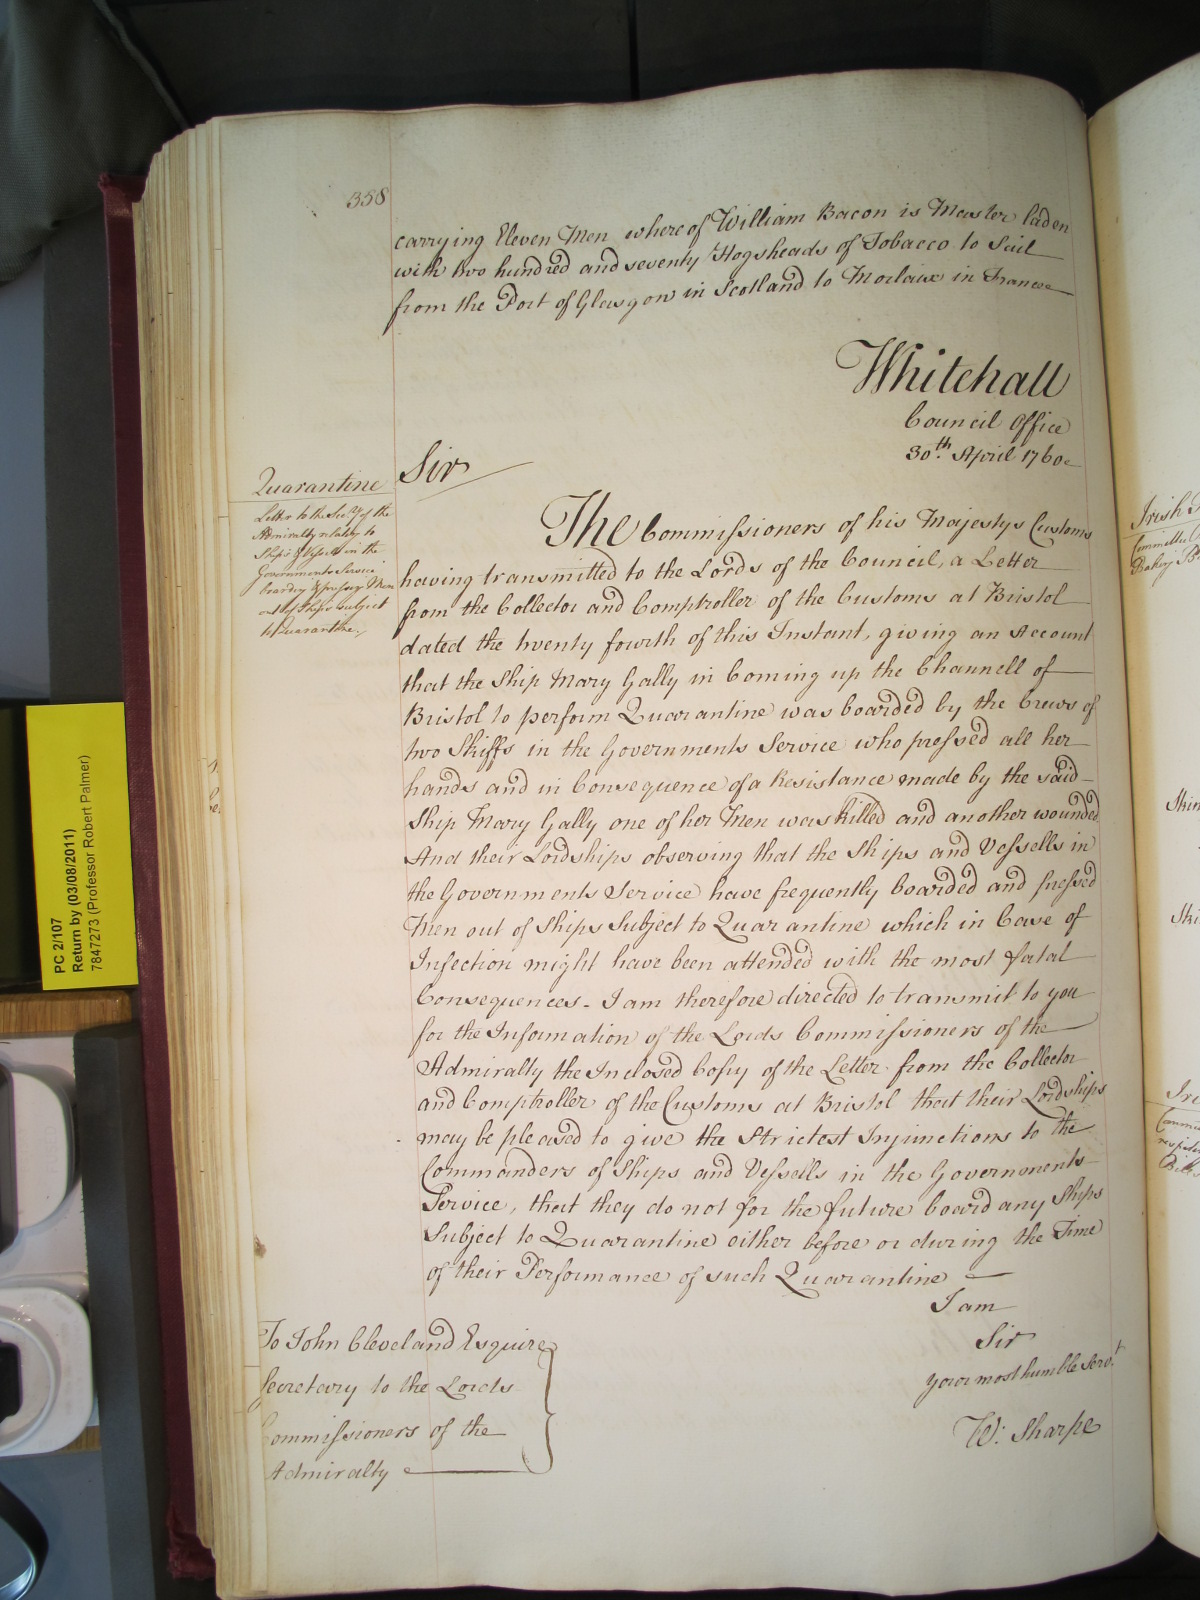 358
carrying Eleven Men whereof William Bacon is Master laden
with two hundred and seventy Hogsheads of Tobacco to Sail
from the Port of Glasgow in Scotland to Morlaix in France
Whitehall
Council Office
30th. April 1760
Sir
Quarantine
Letter to the Secry of the
Admiralty relating to
Ships & Vessels in the
Governments Service
boarding & pressing Men
out of Ships subject
to Quarantine.
The Commissioners of his Majestys Customs
having transmitted to the Lords of the Council, a Letter
from the Collector and Comptroller of the Customs at Bristol
dated the twenty fourth of this Instant, giving an Account
that the Ship Mary Gally in Coming up the Channell of
Bristol to perform Quarantine was boarded by the Crews of
two Skiffs in the Governments Service who pressed all her
hands and in Consequence of a Resistance made by the said
Ship Mary Gally one of her Men was killed and another wounded
And their Lordships observing that the Ships and Vessells in
the Governments Service have frequently boarded and pressed
Men out of Ships Subject to Quarantine which in Case of
Infection might have been attended with the most fatal
Consequences - I am therefore directed to transmit to you
for the Information of the Lords Commissioners of the
Admiralty the Inclosed Copy of the Letter from the Collector
and Comptroller of the Customs at Bristol that their Lordships
may be pleased to give the Strictest Injunctions to the
Commanders of Ships and Vessells in the Governments
Service, that they do not for the future board any Ships
Subject to Quarantine either before or during the Time
of their Performance of such Quarantine
I am
Sir
your most humble Servt
W: Sharpe
To John Cleveland Esquire
Secretary to the Lords
Commissioners of the
Admiralty
PC 2/107
Return by (03/08/2011)
7847273 (Professor Robert Palmer)
Irish